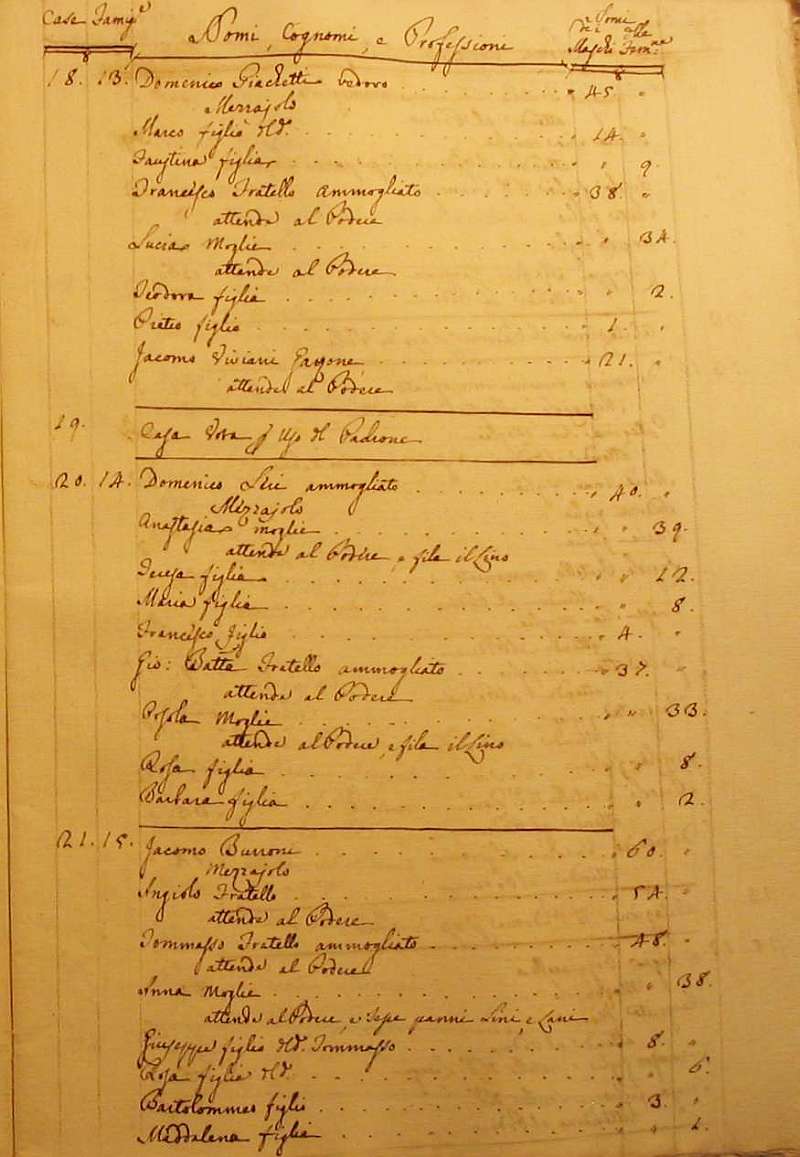 Case Famig.e Nomi, Cognomi, e Professioni Maschi Fem.ne
8 8
18. 13. Domenico Giachetti vedovo 45 "
Mezzajolo
Marco figlio dd.o 14. "
Faustina figlia " 9.
Francesco Fratello Ammogliato 38. "
attende al Podere
Lucia Moglie " 34.
attende al Podere
Teodora figlia " 2.
Pietro figlio 1. "
Jacomo Viviani Garzone 21. "
attende al Podere
19. Casa Vota p Uso del Padrone
20. 14. Domenico ammogliato 40. "
Mezzajolo
Anastasia moglie " 39.
attende al Podere, e fila il Lino
Teresa figlia " 12.
Maria figlia " 8.
Francesco figlio 4. "
Gio: Batta Fratello ammogliato 37. "
attende al Podere
Moglie " 33.
attende al Podere, e fila il Lino
Rosa figlia " 8.
Barbara figlia " 2.
21. 15. Jacomo Burroni 60. "
Mezzajolo
Angiolo Fratello 54. "
attende al Podere
Tommasso Fratello ammogliato 48. "
attende al Podere
Anna Moglie " 38.
attende al Podere, e Tesse panni Lini, e Lani
Giuseppe figlio dd.o Tommasso 8. "
Rosa figlia dd.o " 6.
Bartolommeo figlio 3. "
Maddalena figlia " 1.